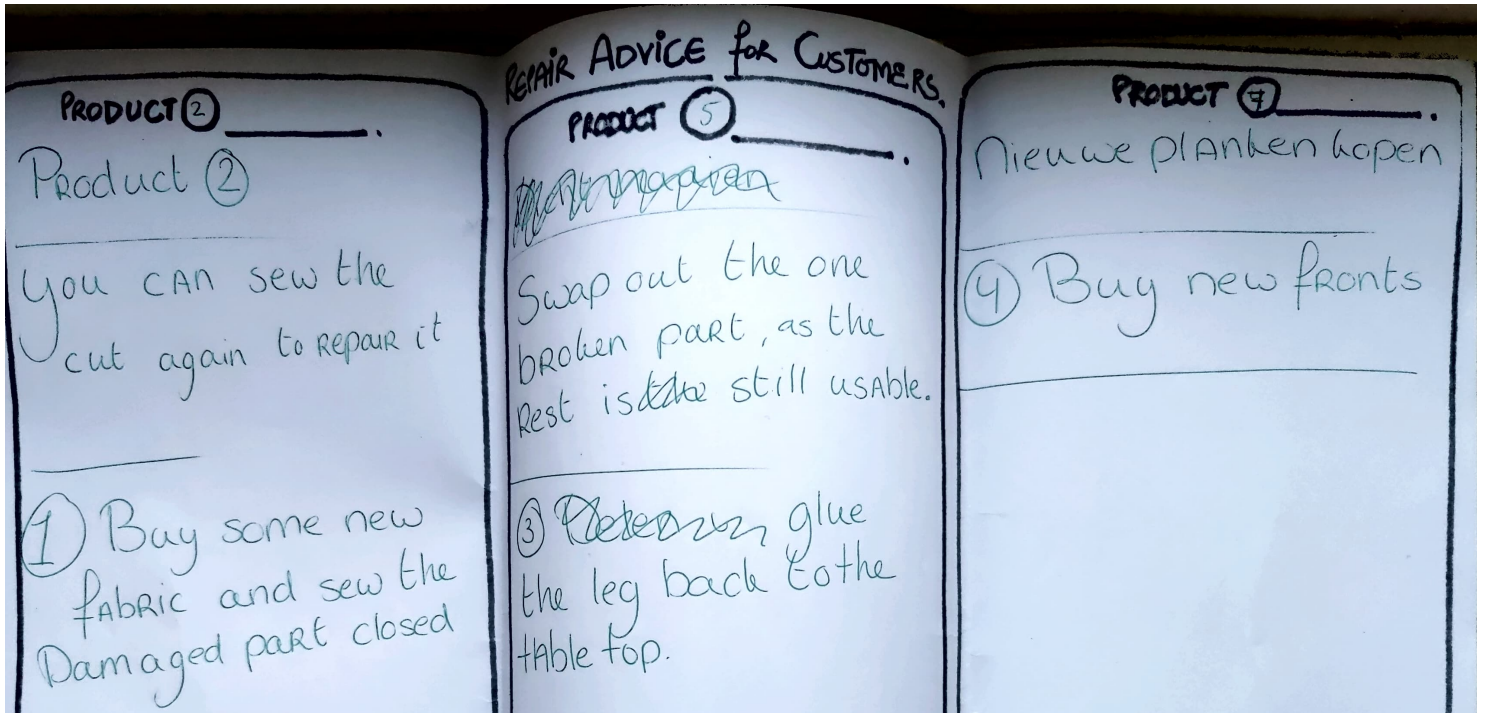 REPAIR ADVICE for CUSTOMERS.
PRODUCT 2 ______.
Product 2
you can sew the
cut again to repair it
1 Buy some new
fabric and sew the
Damaged part closed
PRODUCT 5 ______.
Swap out the one
broken part, as the
Rest is still usable.
3 glue
the leg back to the
table top.
PRODUCT 7 ______.
Nieuwe planken kopen
4 Buy new fronts